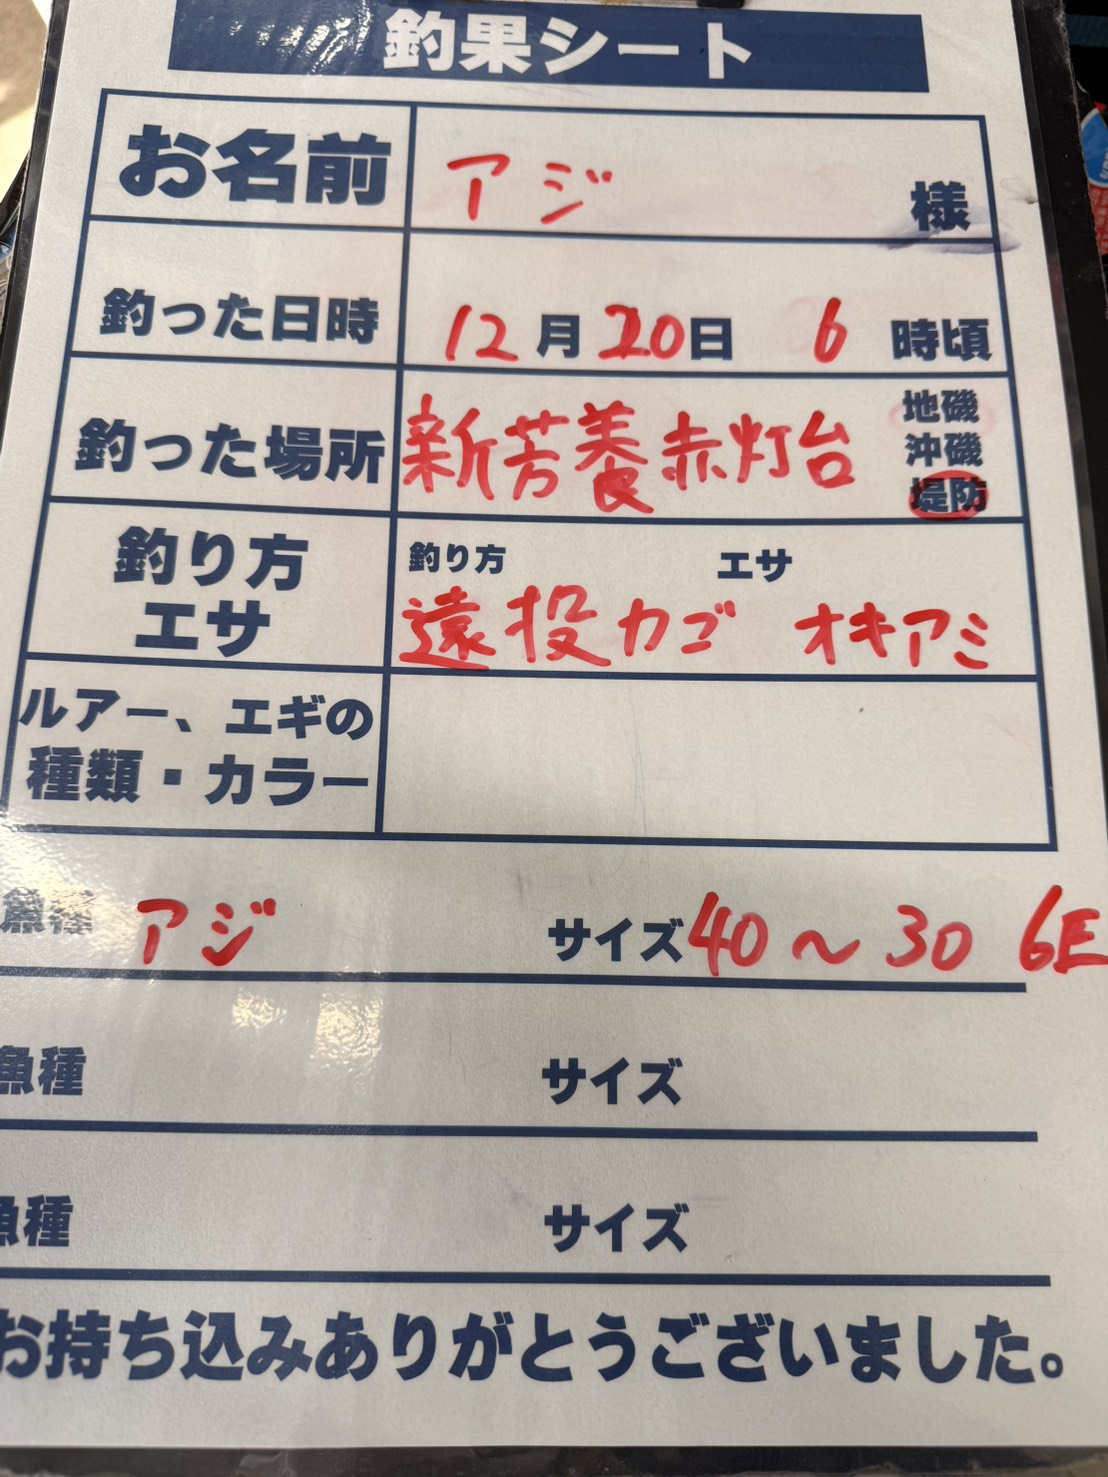 釣果シート
お名前 アジ 様
釣った日時 12月20日 6時頃
釣った場所 新芳養赤灯台 地磯
沖磯
堤防
釣り方 エサ
釣り方 遠投カゴ エサ オキアミ
ルアー、エギの
種類・カラー
魚種 アジ サイズ 40～30 6
魚種 サイズ
魚種 サイズ
お持ち込みありがとうございました。